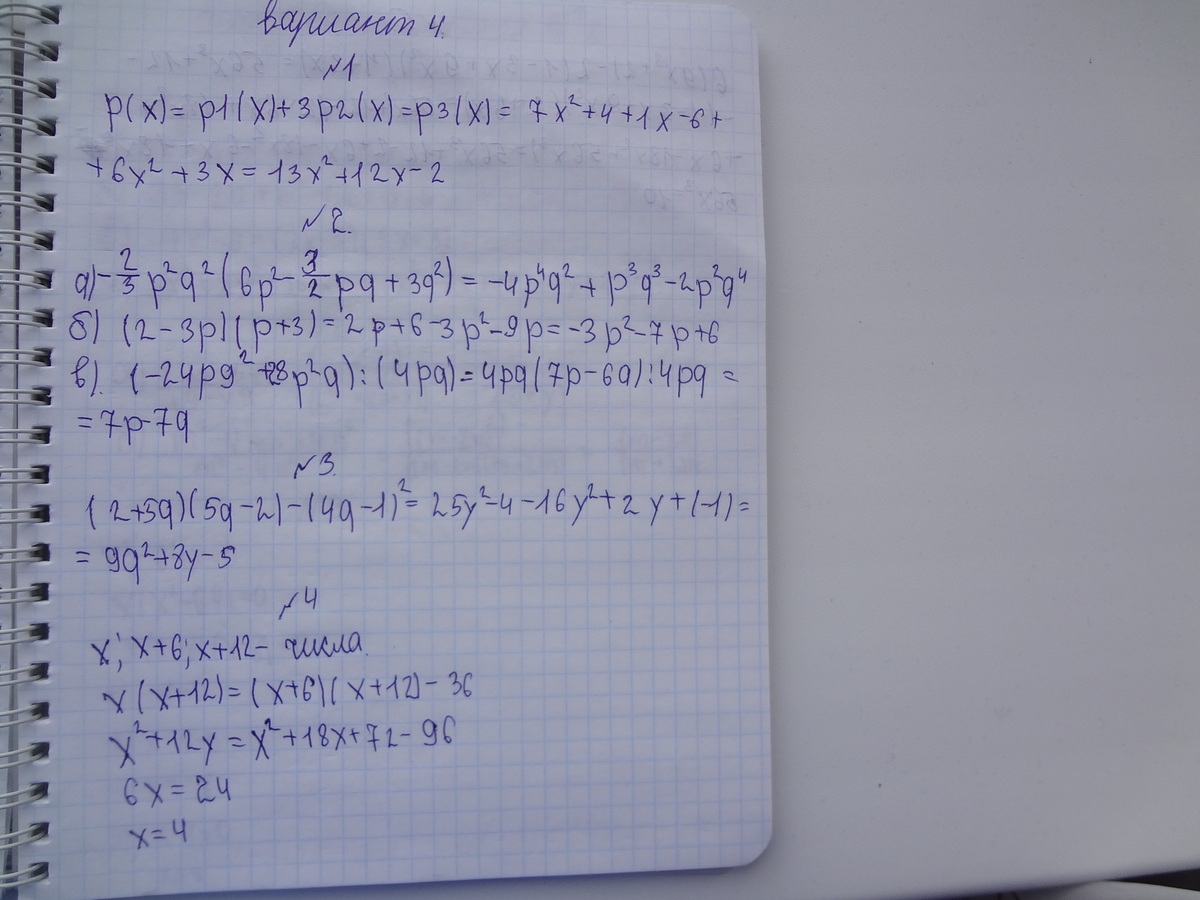 вариант 4.
№1
p(x) = p1(x)+3p2(x)=p3(x)= 7x²+4+1x-6+
+6x²+3x=13x²+12x-2
№2.
а) -2/3 p²q²(6p²-3/2 pq+3q²)= -4p⁴q²+p³q³-2p²q⁴
б) (2-3p)(p+3)=2p+6-3p²-9p=-3p²-7p+6
в). (-24pq²+28p²q):(4pq)=4pq(7p-6q):4pq=
=7p-7q
№3.
(2+5q)(5q-2)-(4q-1)²=25y²-4-16y²+2y+(-1)=
=9q²+8y-5
№4
x; x+6; x+12- числа.
x(x+12)=(x+6)(x+12)-36
x²+12y=x²+18x+72-96
6x=24
x=4